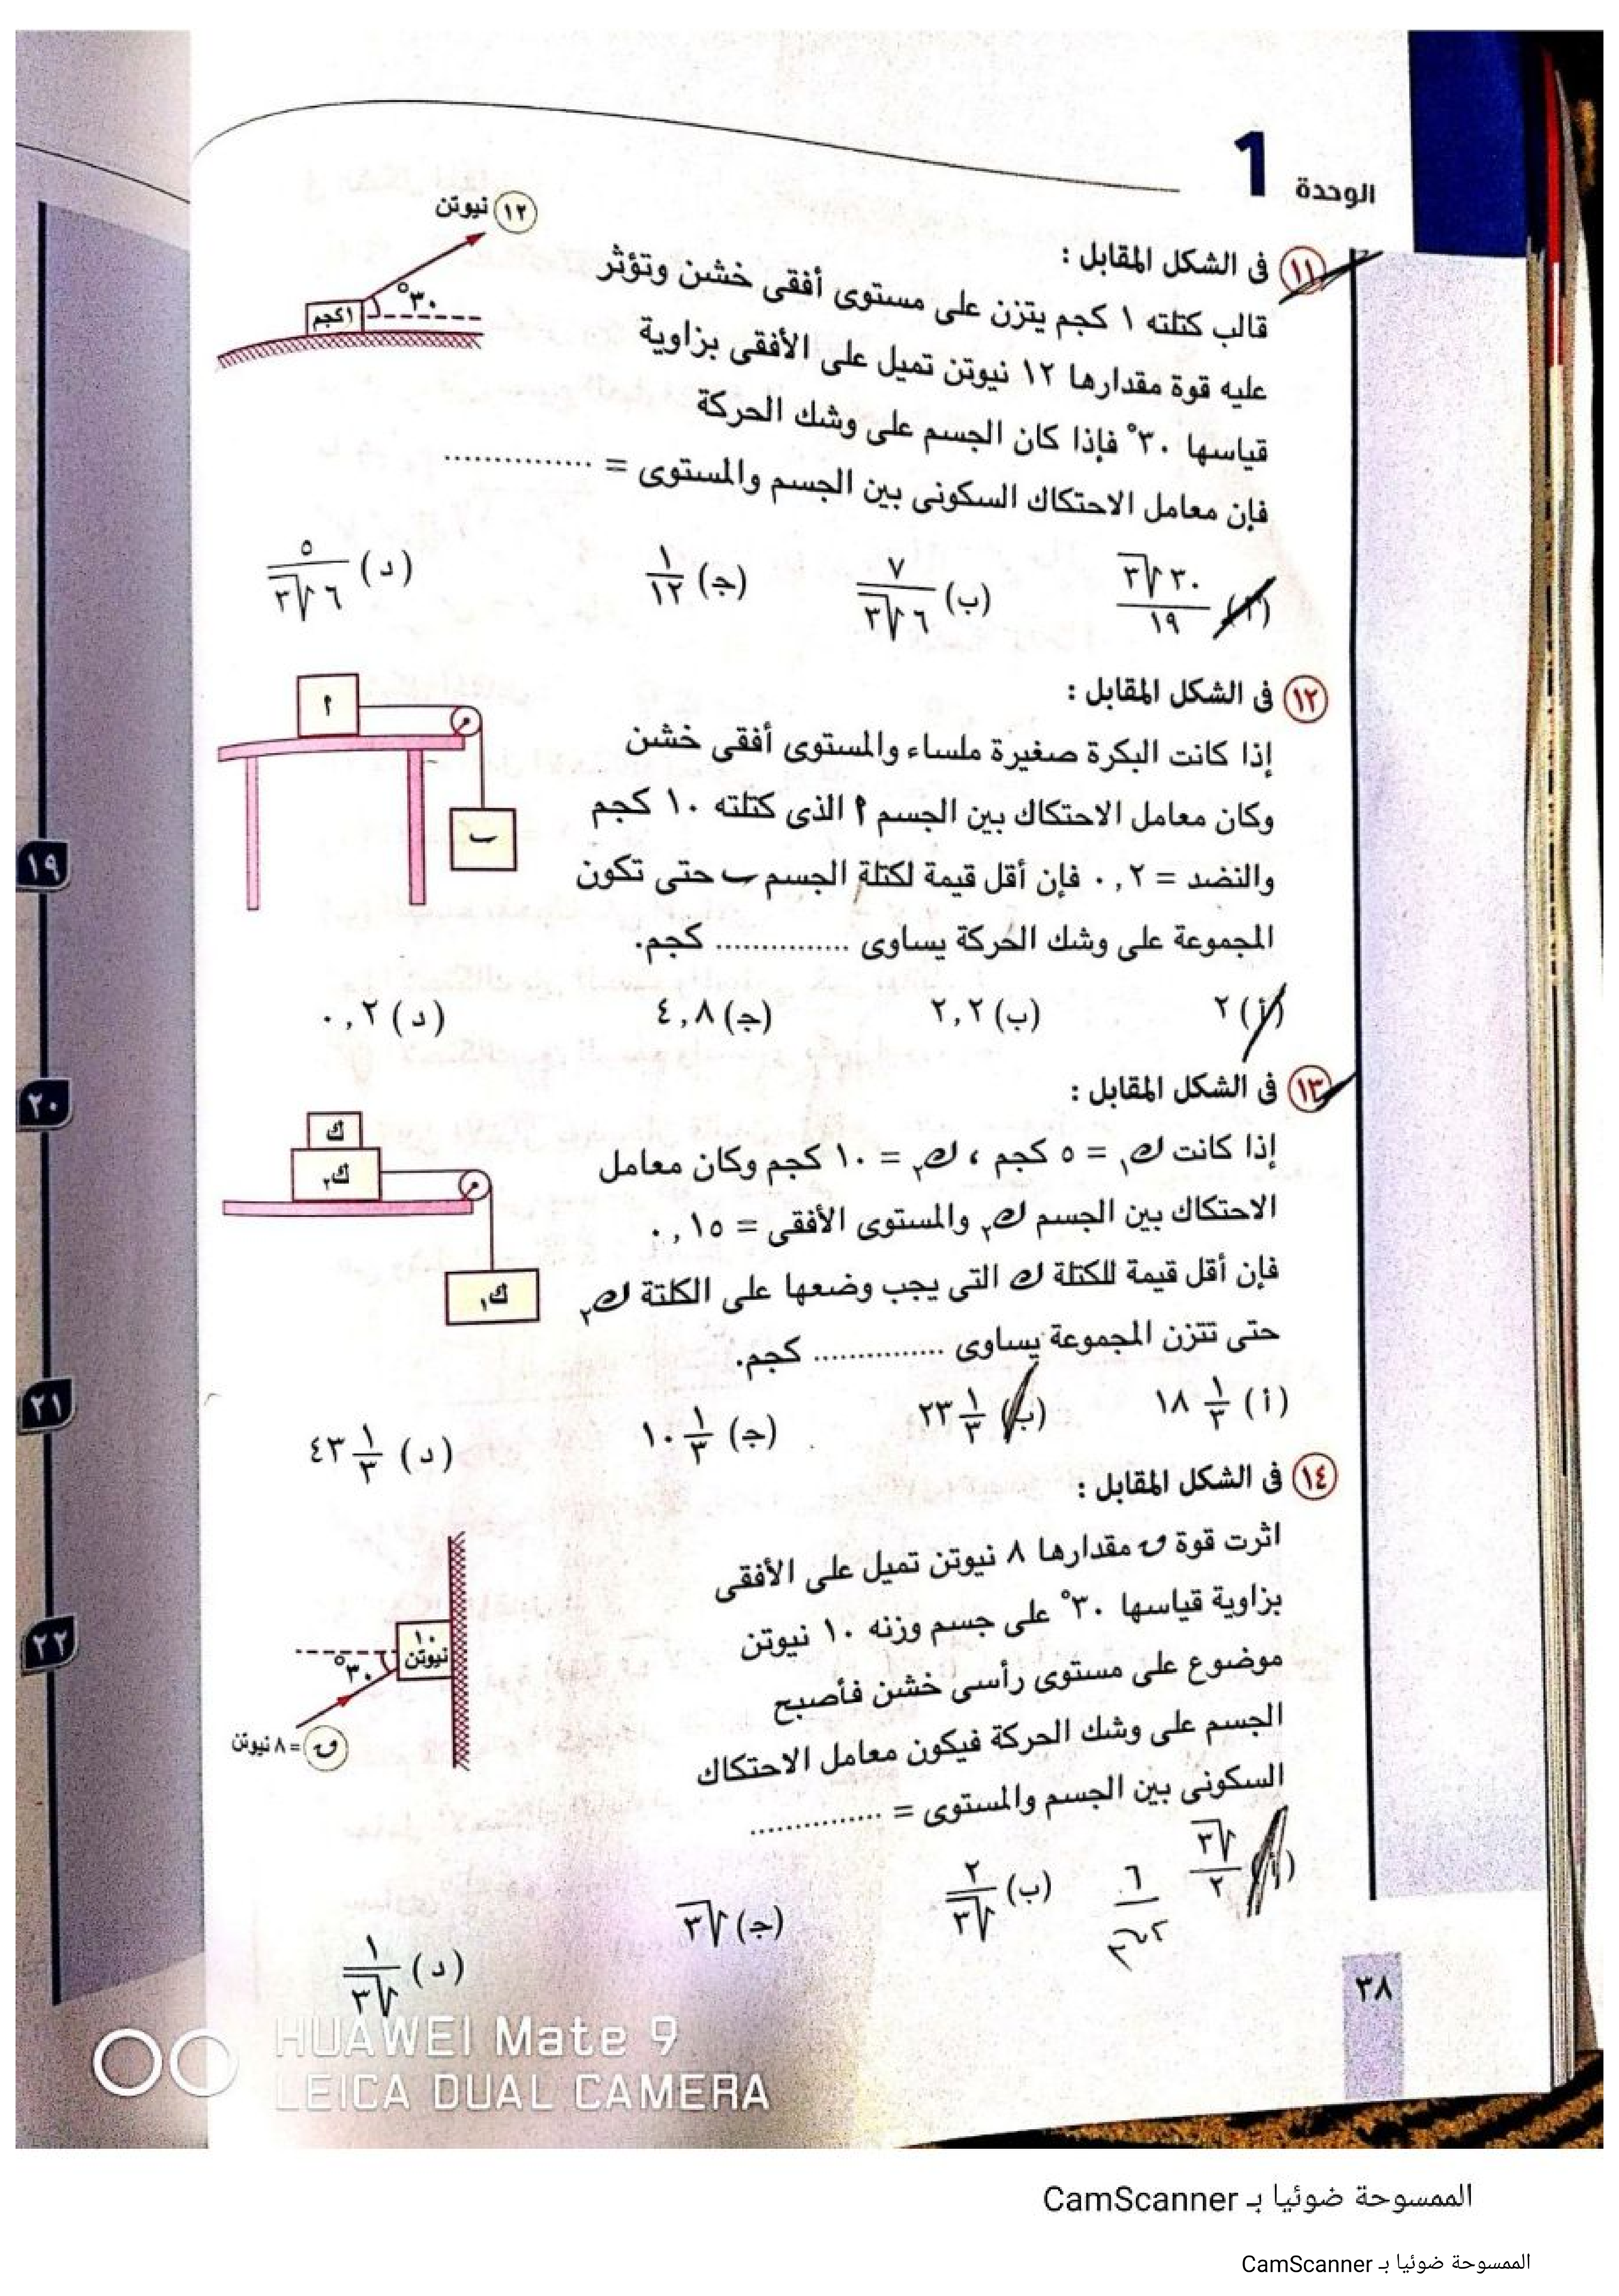 الوحدة 1
١١ فى الشكل المقابل :
قالب كتلته ١ كجم يتزن على مستوى أفقى خشن وتؤثر
عليه قوة مقدارها ١٢ نيوتن تميل على الأفقى بزاوية
قياسها ٣٠° فإذا كان الجسم على وشك الحركة
فإن معامل الاحتكاك السكونى بين الجسم والمستوى = ..............
١٢ نيوتن
٣٠°
١ كجم
(أ) ٣٠√٣ / ١٩ (ب) ٧ / ٦√٣ (جـ) ١ / ١٢ (د) ٥ / ٦√٣
١٢ فى الشكل المقابل :
إذا كانت البكرة صغيرة ملساء والمستوى أفقى خشن
وكان معامل الاحتكاك بين الجسم ٢ الذى كتلته ١٠ كجم
والنضد = ٠,٢ فإن أقل قيمة لكتلة الجسم ب حتى تكون
المجموعة على وشك الحركة يساوى .............. كجم.
٢
ب
(أ) ٢ (ب) ٢,٢ (جـ) ٤,٨ (د) ٠,٢
١٣ فى الشكل المقابل :
إذا كانت ك١ = ٥ كجم ، ك٢ = ١٠ كجم وكان معامل
الاحتكاك بين الجسم ك٢ والمستوى الأفقى = ٠,١٥
فإن أقل قيمة للكتلة ك التى يجب وضعها على الكلتة ك٢
حتى تتزن المجموعة يساوى .............. كجم.
ك
ك٢
ك١
(أ) ١٨ ١/٣ (ب) ٢٣ ١/٣ (جـ) ١٠ ١/٣ (د) ٤٣ ١/٣
١٤ فى الشكل المقابل :
اثرت قوة ق مقدارها ٨ نيوتن تميل على الأفقى
بزاوية قياسها ٣٠° على جسم وزنه ١٠ نيوتن
موضوع على مستوى رأسى خشن فأصبح
الجسم على وشك الحركة فيكون معامل الاحتكاك
السكونى بين الجسم والمستوى = ..............
١٠
نيوتن
٣٠°
ق = ٨ نيوتن
(أ) √٣ / ٢ (ب) ٢ / √٣ (جـ) √٣ (د) ١ / √٣
٣٨
١٩
٢٠
٢١
٢٢
HUAWEI Mate 9
LEICA DUAL CAMERA
الممسوحة ضوئيا بـ CamScanner
الممسوحة ضوئيا بـ CamScanner